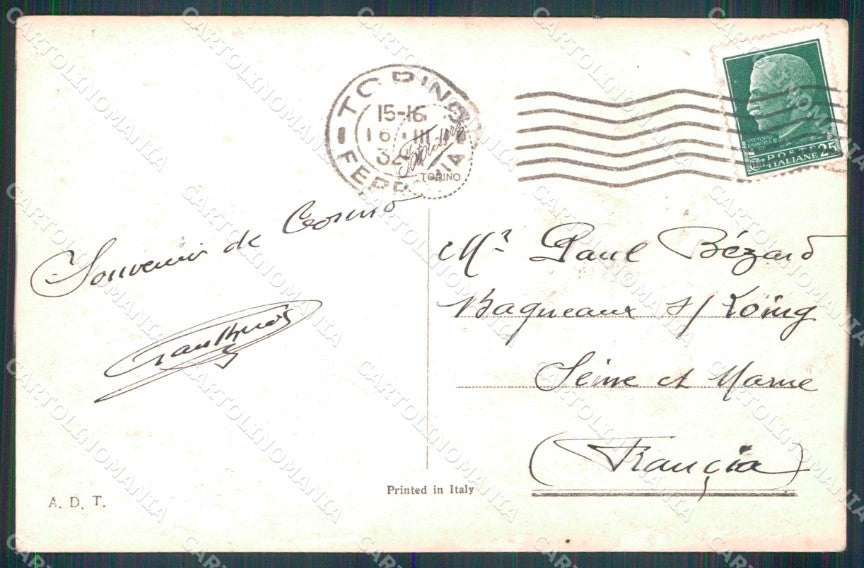 TORINO
15-16
16 III
32
FERROVIA
TORINO
POSTE
ITALIANE 25
Souvenir de Torino
Mr Paul Bézard
Bagneaux s/ Loing
Seine et Marne
(Françia)
Printed in Italy
A. D. T.
CARTOLINOMANIA